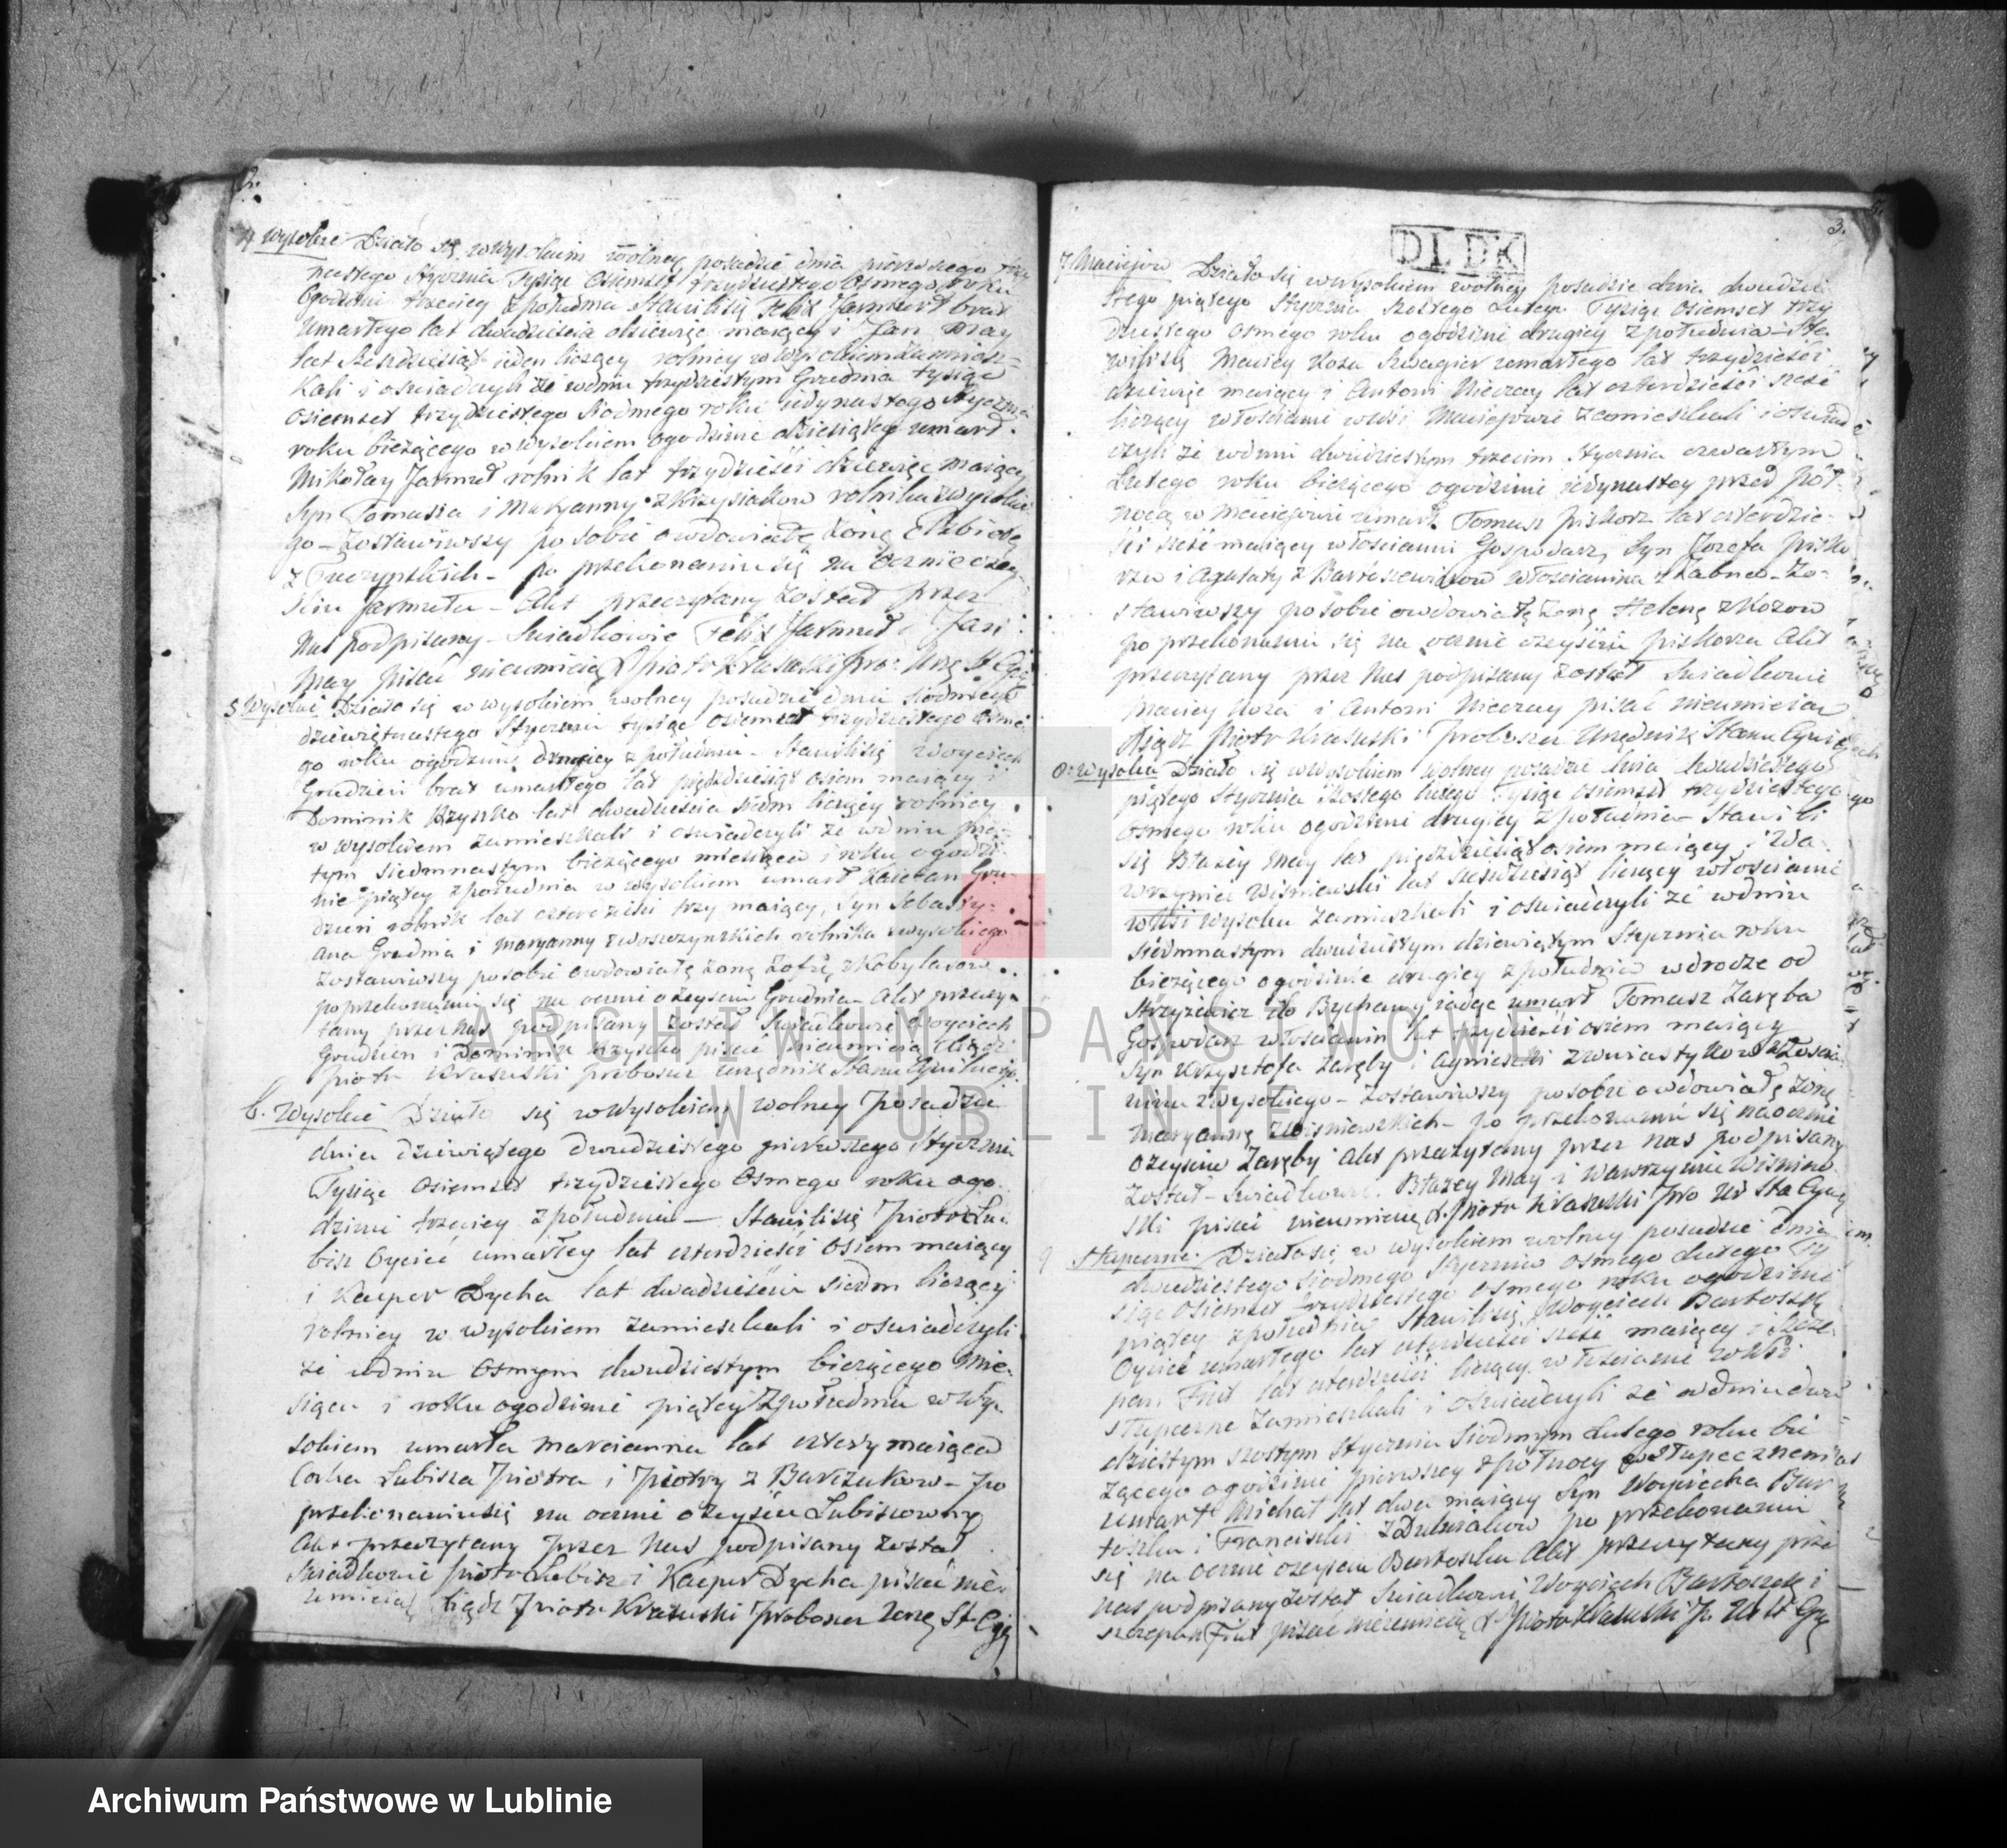 2.
4 Wysokie Działo się w Wysokiem wolney posadzie dnia pierwszego trzy
nastego Stycznia Tysiąc Osiemset trzydziestego Osmego roku
Ogodzini trzeciey z południa Stawili się Felix Jarmuł brat
Umarłego lat dwadzieścia dziewięć maiący i Jan May
lat sześdziesiąt ieden liczący rolnicy w Wysokiem zamiesz-
kali i oswiadczyli że w dniu trzydziestym Grudnia tysiąc
osiemset trzydziestego siodmego roku iedynastego Stycznia
roku bieżącego w Wysokiem ogodzinie dziesiątey umarł
Mikołay Jarmuł rolnik lat trzydzieści dziewięć maiący
Syn Tomasza i Maryanny z Krzysiakow rolnika z Wysokie
go - Zostawiwszy po sobie owdowiałę żonę Elzbietę
z - po przekonaniu się na ocznie o zey-
ściu Jarmuła - Akt przeczytany został przez
Nas podpisany - Swiadkowie Felix Jarmuł i Jan
May pisać nieumieią X Piotr Krasuski Pro: Urzę St Cyw
5 Wysokie Działo się w Wysokiem wolney posadzie dnia siodmego
dziewiętnastego Stycznia tysiąc osiemset trzydziestego osme-
go roku ogodzinie drugiey z południa - Stawili się Woyciech
Grudzień brat umarłego lat pięćdziesiąt osiem maiący i
Dominik Krzyszka lat dwadzieścia siedm liczący rolnicy
w Wysokiem zamieszkali i oswiadczyli że w dniu pią-
tym siedmnastym bieżącego miesiąca i roku ogodzi-
nie piątey z południa w Wysokiem umarł Kaietan Gru-
dzień rolnik lat czterdzieści trzy maiący, Syn Sebasty-
ana Grudnia i Maryanny z rolnika z Wysokiego
zostawiwszy posobie owdowiałę żonę Zofię z Kobylasow
po przekonaniu się na ocznie o zeysciu Grudnia - Akt przeczy-
tany przez nas podpisany został Swiadkowie Woyciech
Grudzien i Dominik Krzyszka pisać nieumieią Xiądz
Piotr Krasuski proboszcz urzędnik Stanu Cywilnego
6. Wysokie Działo się w Wysokiem wolney Posadzie
dnia dziewiątego dwudziestego pierwszego Stycznia
Tysiąc Osiemset trzydziestego Osmego roku ogo-
dzinie trzeciey z południa - Stawili się Piotr Lu-
bisz Oyciec umarłey lat czterdzieści osiem maiący
i Kacper Dycha lat dwadzieścia siedm liczący
rolnicy w Wysokiem zamieszkali i oswiadczyli
że wdniu Osmym dwudziestym bieżącego Mie-
siąca i roku ogodzinie piątey z południa w Wy-
sokiem umarła Marcianna lat cztery maiąca
Corka Lubisza Piotra i Piotry z Barczukow - Po
przekonaniu się na ocznie o zeyściu Lubiszowny
Akt przeczytany Przez Nas podpisany został
Swiadkowie Piotr Lubisz i Kacper Dycha pisać nie-
umieią Xiądz Piotr Krasuski Proboszcz Urzę St Cyw
3.
DLDK
7 Maciejow Działo się w Wysokiem wolney posadzie dnia dwudzie-
stego piątego Stycznia szostego Lutego Tysiąc Osiemset trzy
dziestego Osmego roku ogodzinie drugiey z południa Sta-
wili się Maciey Koza Szwagier zmarłego lat trzydzieści
dziewięć maiący i Antoni Nieczay lat czterdzieści sześć
liczący włościanie wWsi Maciejowie zamieszkali i oswiad-
czyli że wdniu dwudziestym trzecim Stycznia czwartym
Lutego roku bieżącego ogodzinie iedynastey przed Pół-
nocą w Maciejowie umarł Tomasz Piskorz lat czterdzie-
ści sześć maiący włościanin Gospodarz, Syn Jozefa Pisko
rza i Agataty z Bartoszewiczow włościanina z Zabna - Zo-
stawiwszy po sobie owdowiałę żonę Helenę z Kozow
Po przekonaniu się na ocznie o zeyściu Piskorza Akt
przeczytany przez Nas podpisany został Swiadkowie
Maciey Koza i Antoni Nieczay pisać nieumieią
Xiądz Piotr Krasuski Proboszcz Urzędnik Stanu Cywil
8: Wysokie Działo się w Wysokiem wolney posadzie dnia dwudziestego
piątego Stycznia szostego lutego Tysiąc osiemset trzydziestego
Osmego roku ogodzinie drugiey z południa - Stawili
się Błażey May lat pięćdziesiąt osiem maiący i Wa-
wrzyniec Wiśniewski lat sześćdziesiąt liczący włościanie
wWsi Wysokie zamieszkali i oświadczyli że wdniu
siedmnastym dwudziestym dziewiątym Stycznia roku
bieżącego ogodzinie drugiey z południa w drodze od
Strzyżewic do Bychawy iadąc umarł Tomasz Zaręba
Gospodarz włościanin lat trzydzieści osiem maiący
Syn Krzysztofa Zaręby i Agnieszki z włościa-
nina z Wysokiego - Zostawiwszy posobie owdowiałę żonę
Maryannę z Wiśniewskich - po przekonaniu się naocznie
o zeysciu Zaręby Akt przeczytany przez nas podpisany
został - Swiadkowie. Błażey May i Wawrzyniec Wiśniew-
ski pisać nieumieią X. Piotr Krasuski Pro Ur Sta Cywy
9 Słupeczne. Działo się w Wysokiem wolney posadzie dnia
dwudziestego siodmego Stycznia osmego Lutego Ty
siąc osiemset trzydziestego osmego roku ogodzinie
piątey z południa Stawili się Woyciech Bartoszek
Oyciec umarłego lat czterdzieści sześć maiący i Szcze-
pan Fiut lat czterdzieści liczący włościanie wWsi
Słupeczne zamieszkali i oswiadczyli że w dniu dwu
dziestym szostym Stycznia siodmym Lutego roku bie
żącego ogodzinie pierwszey z połnocy w Słupecznem
umarł Michał lat dwa maiący Syn Woyciecha Bar
toszka i Franciszki z Dubialkow po przekonaniu
się na ocznie ozeysciu Bartoszka Akt przeczytany prze
nas podpisany został Swiadkowie Woyciech Bartoszek i
Szczepan Fiut pisać nieumieią X Piotr Krasuski P. Ur St Cyw
ARCHIWUM PAŃSTWOWE
W LUBLINIE
Archiwum Państwowe w Lublinie